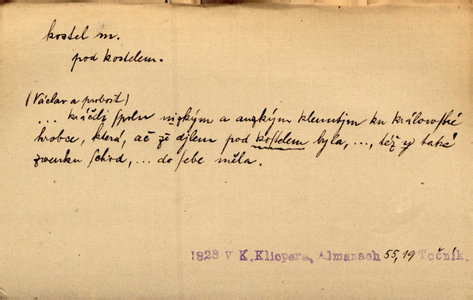 kostel m.
pod kostelem.
(Václav a probošt)
... kráčeli spolu nizkým a auzkým klenutjm ku králowské
hrobce, která, ač zě djlem pod kostelem byla, ..., též y také
zwenku schod, ... do sebe měla.
1828 V K. Klicpera, Almanach 55, 19 Točník.